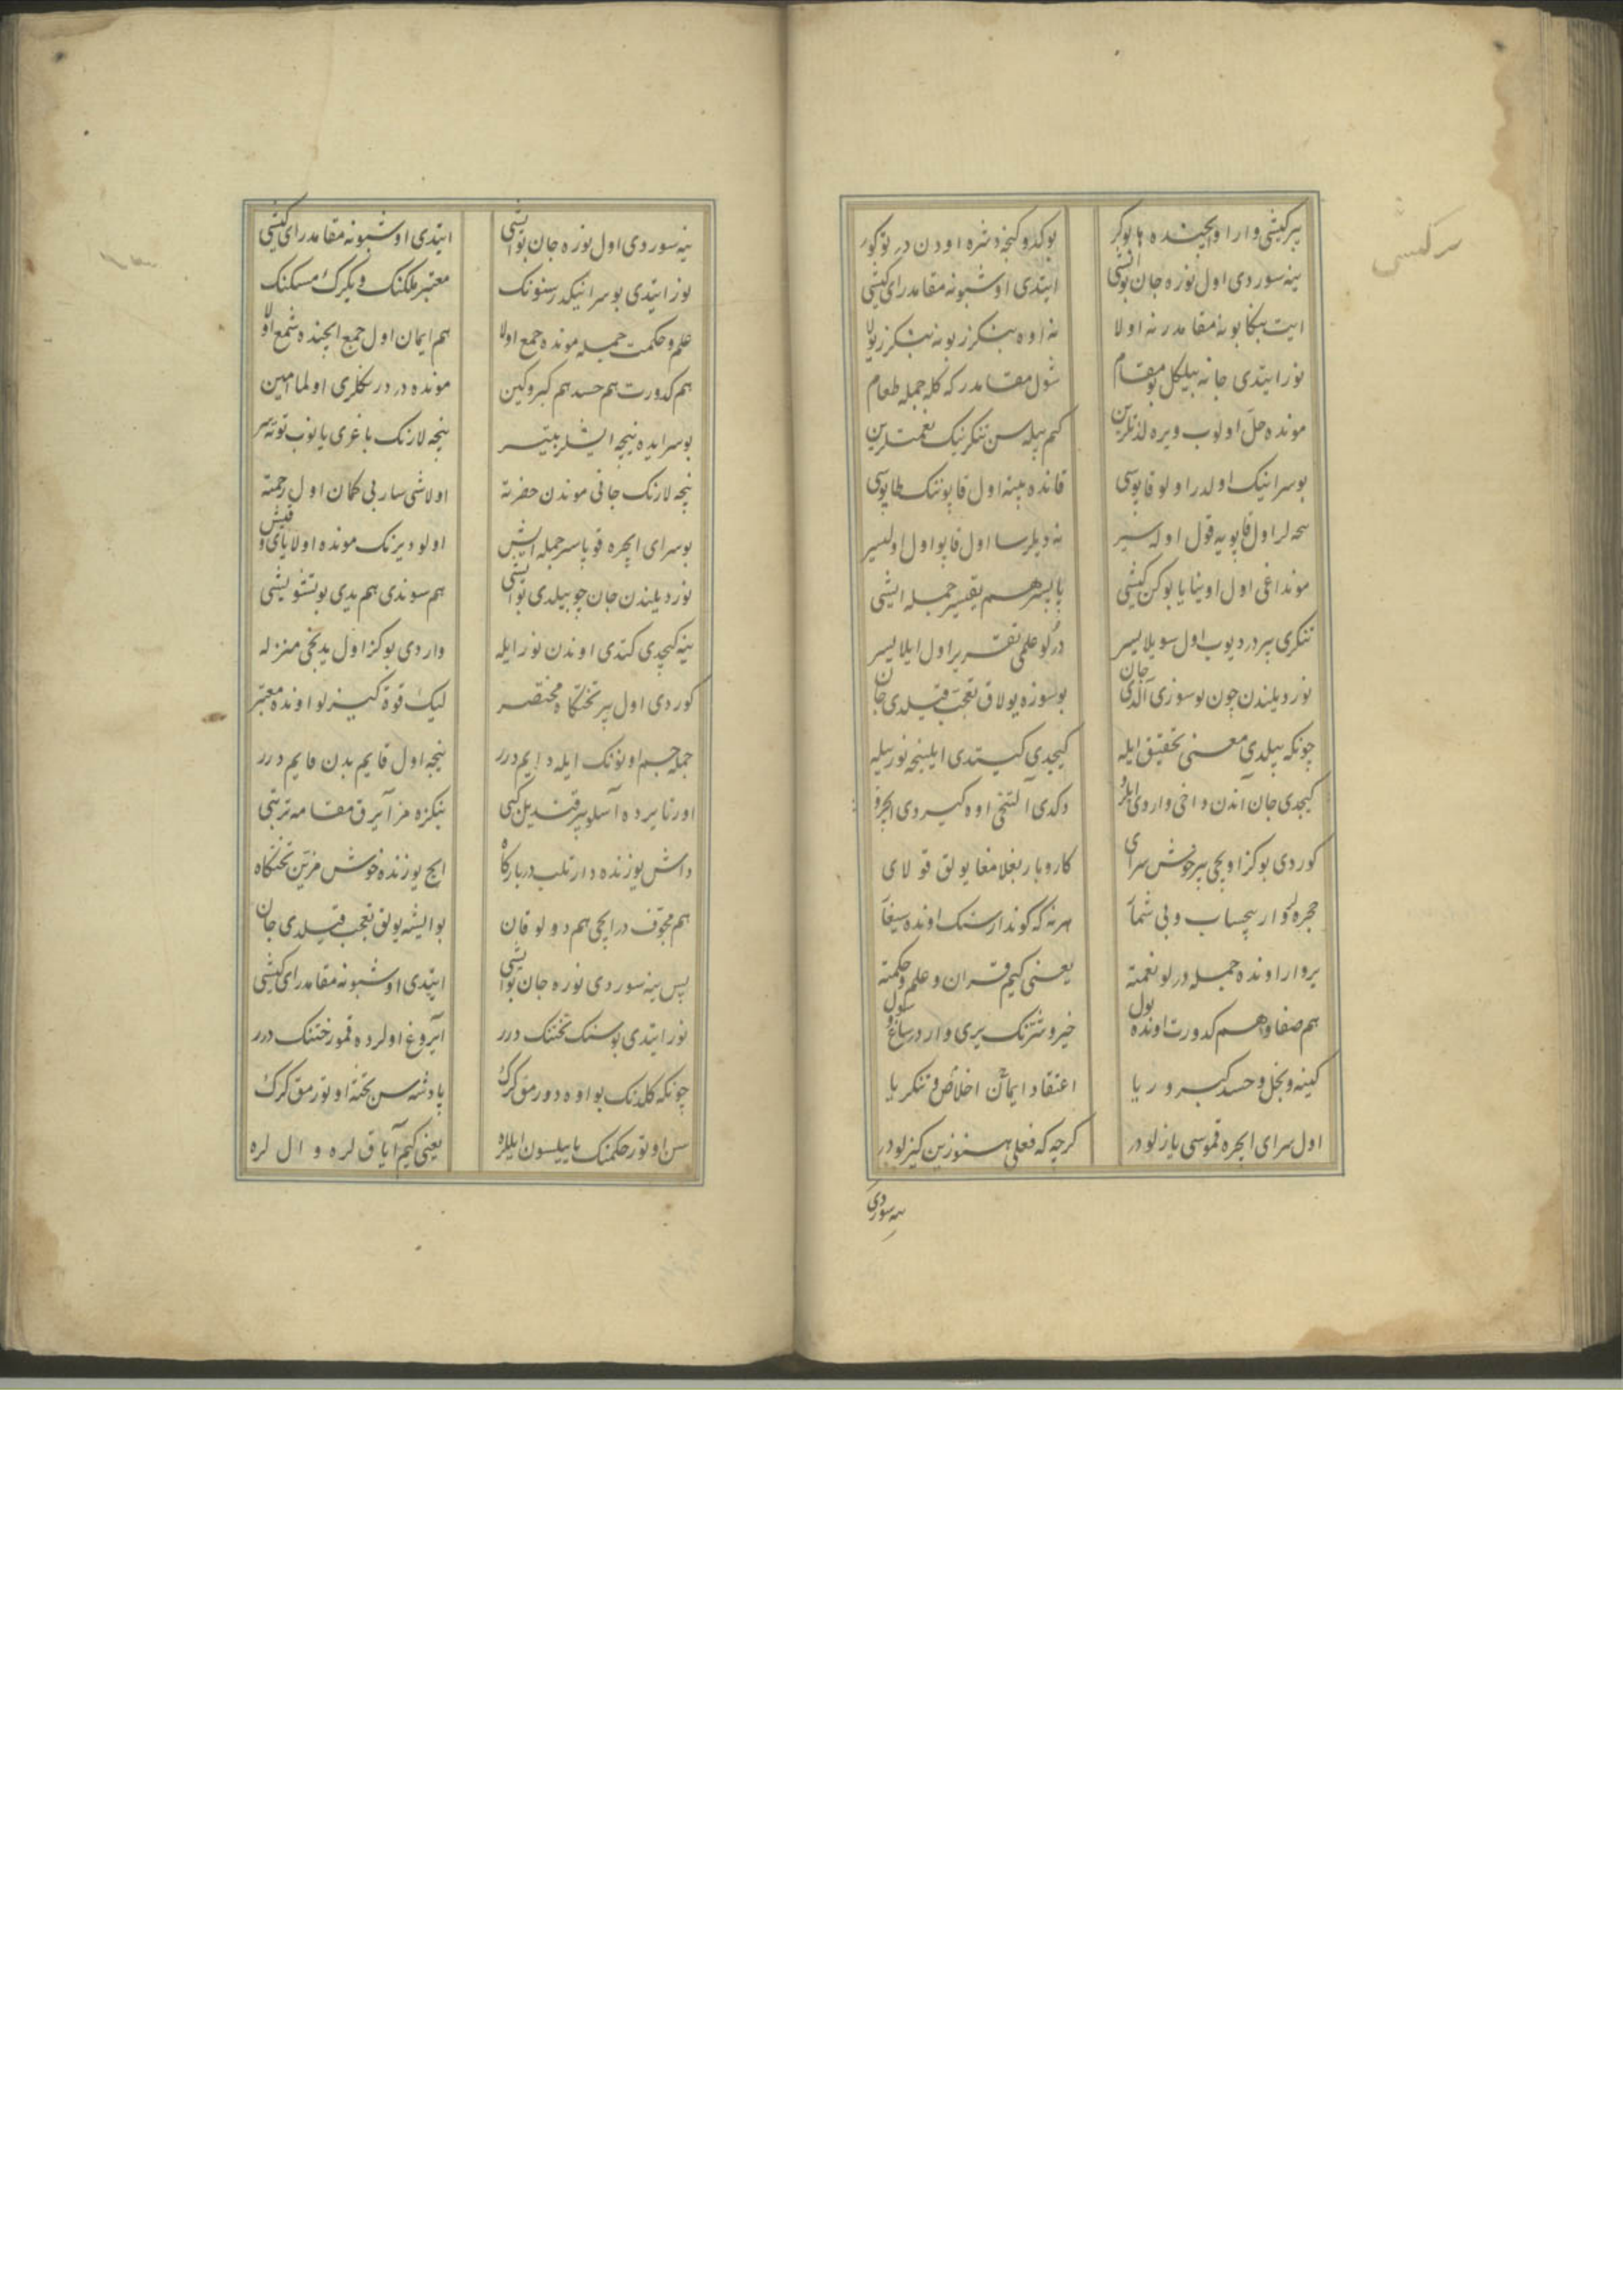 بیر کیشی وار او ایچینده ها بو کر بو کدوکنجه دشره اودن در بو کور
ینه سوردی اول نوره جان بو ایشی ایتدی اوشبو نه مقامدر ای کیشی
ایت بنکا بو نه مقامدر نه اولا نه اوه بنکزر بو نه بنکزر یولا
نور ایتدی جانه بیلکل بو مقام شول مقامدر که کله جمله طعام
مونده حل اولوب ویره لذتلرین کیم بیله سن تنکرینک نعمتلرین
بو سراینک اولدر اولو قاپوسی قانده بیته اول قاپوننک طاپوسی
اول قاپویه قول اولیسر نه دیلرسا اول قاپو اول اولیسر
مونداغی اول اوینایا بو کن کیشی یاپیسر هم یقیسر جمله ایشی
تنکری بیردر دیوب اول سویلایسر درلو علمی تقریر اول ایلایسر
نور دیلندن چون بو سوزی آلدی جان بو سوزه یولاق تعجب قیلدی جان
چونکه بیلدی معنی تحقیق ایله کیچدی کیتدی ایلینجه نور بیله
کیچدی جان آندن داخی واردی ایلرو دکدی آلتنجی اوه کیردی ایچرو
کوردی بو کز اویچی بیر خوش سرای کاروبار بغلامغا یولق قولای
حجره لو وار بیحساب و بی شمار هر نه که کوندارسنک اونده سیغار
یر وار اونده جمله درلو نعمته یعنی کیم قران و علم و حکمته
هم صفا و هم کدورت اونده بول خیر و شرنک یری واردر ساغ و سول
کینه و بخل و حسد کبر و ریا اعتقاد ایمان اخلاص و تنکریا
اول سرای ایچره قموسی یازلودر کرچه که فعلی هنوزین کیزلودر
ینه سوردی
ینه سوردی اول نوره جان بو ایشی ایتدی اوشبو نه مقامدر ای کیشی
نور ایتدی بو سراینکدر سنونک معتبر ملکنک و یکرک مسکنک
علم و حکمت جمله مونده جمع اولا هم ایمان اول جمع ایچنده شمع اولا
هم کدورت هم حسد هم کبر و کین مونده در دنکلری اولما امین
بو سرایده نیچه ایشلر بیتیسر نیچه لارنک باغری یانوب توتیسر
نیچه لارنک جانی موندن حضرته اولاشیسار بی کمان اول رحمته
بو سرای ایچره قوپاسر جمله ایش اولو دیرنک مونده اولا یای و قیش
نور دیلندن جان چو بیلدی بو ایشی هم سوندی هم یدی بو تشویشی
ینه کیچدی کتدی اوندن نور ایله واردی بو کز اول یدنجی منزله
کوردی اول بیر تختکاه مختصر لیک قوة کیزلو اونده معتبر
جمله جسم اونونک ایله دایم درر نیجه اول قایم بدن قایم درر
اورتا یرده آسلو بیر قندیل کبی بنکزه مز آیرق مقامه ترتبی
داش یوزنده دارتلب دربارکاه ایچ یوزنده خوش مزین تختکاه
هم مجوف در ایچی هم دولو قان بو ایشه یولق تعجب قیلدی جان
پس ینه سوردی نوره جان بو ایشی ایتدی اوشبو نه مقامدر ای کیشی
نور ایتدی بو سنک تختنک درر آیروغ اولرده قمو رختنک درر
چونکه کلدنک بو اوه دورمق کرک پادشه سن تخته اوتورمق کرک
سن اوتور حکمنک یاییلسون ایللره یعنی کیم آیاق لره و ال لره